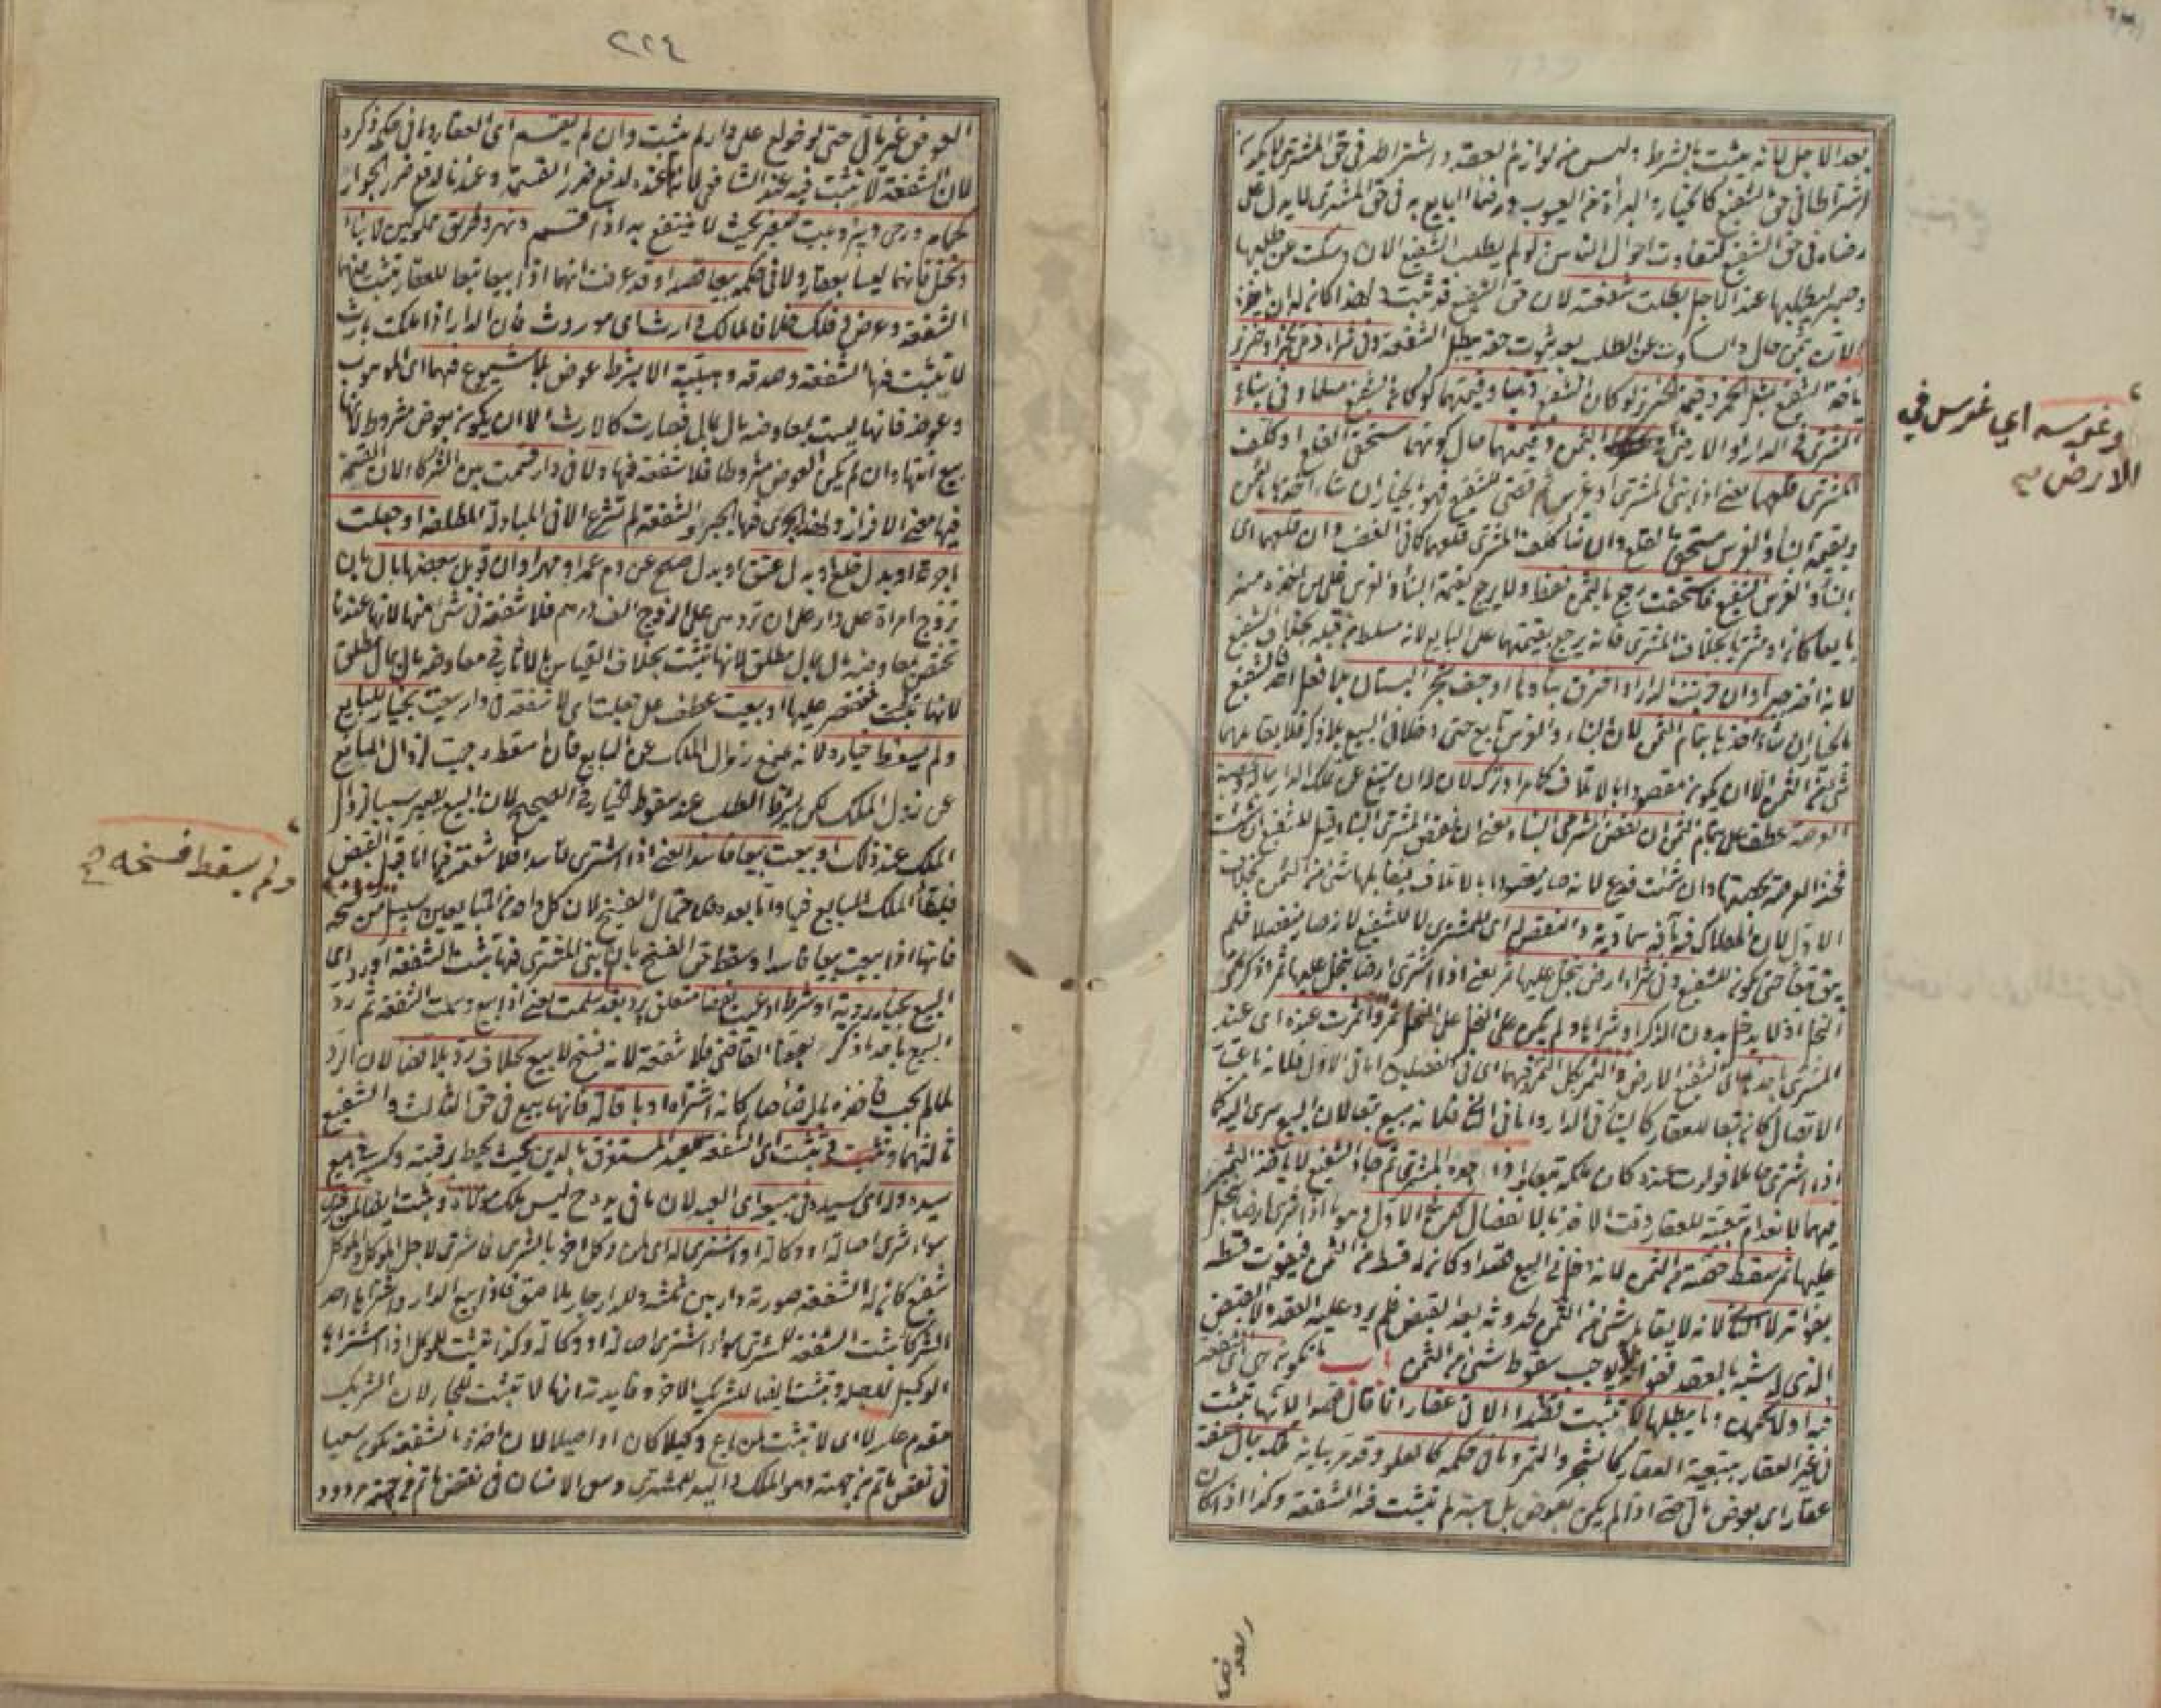 بعد الاجل لانه يثبت بالشرط وليس من لوازم العقد واشتراطه في حق المشتري لا يكون
اشتراطا في حق الشفيع كالخيار والبراءة من العيوب ورضا البايع به في حق المشتري لا يدل على
رضاه في حق الشفيع لتفاوت احوال الناس ولو لم يطلب الشفيع الان وسكت عن طلبها
وصبر ليطلبها عند الاجل بطلت شفعته لان حق الشفيع قد ثبت ولهذا كان له ان ياخذه
الان بثمن حال والسكوت عن الطلب بعد ثبوت حقه يبطل الشفعة وفي شراء ذمي بخمر او خنزير
ياخذ الشفيع بمثل الخمر وقيمة الخنزير لو كان الشفيع ذميا وقيمتهما لو كان الشفيع مسلما وفي بناء
المشتري في الدار او الارض بالثمن وقيمتهما حال كونهما مستحق القلع او كلف
المشتري قلعهما يعني اذا بنى المشتري او غرس ثم قضي للشفيع فهو بالخيار ان شاء اخذها بالثمن
وبقيمة البناء والغرس مستحق القلع وان شاء كلف المشتري قلعهما كما في الغصب وان قلعهما اي
البناء والغرس الشفيع فاستحقت رجع بالثمن فقط ولا يرجع بقيمة البناء والغرس على من اخذه منه
بايعا كان او مشتريا بخلاف المشتري فانه يرجع بقيمتهما على البايع لانه مسلط من قبله بخلاف الشفيع
لانه اخذ جبرا وان خربت الدار او احترق بناؤها او جف شجر البستان بلا فعل احد فالشفيع
بالخيار ان شاء اخذها بتمام الثمن لان البناء والغرس تابع حتى دخلا في البيع بلا ذكر فلا يقابلهما
شيء من الثمن الا ان يكون مقصودا بالاتلاف كما مر او ترك لان له ان يمتنع عن تملك الدار بماله وبحصة
العرصة عطف على بتمام الثمن ان نقض المشتري البناء يعني ان نقض المشتري البناء قيل للشفيع ان شئت
فخذ العرصة بحصتها وان شئت فدع لانه صار مقصودا بالاتلاف فيقابلها شيء من الثمن بخلاف
الاول لان الهلاك فيه بآفة سماوية والنقض له اي للمشتري لا للشفيع لانه صار منفصلا فلم
يبق تبعا حتى يكون للشفيع وفي شراء ارض بنخل عليها ثمر يعني اذا اشترى ارضا بنخل عليها ثمر او ذكر ثمر
النخل اذ لا يدخل بدون الذكر او شراها ولم يكن على النخل ثمر واثمرت عنده اي عند
المشتري ياخذها اي الشفيع الارض والنخل بكل الثمن فيهما اي في الفصلين اما في الاول فلانه باعتبار
الاتصال كان تبعا للعقار كالبناء في الدار واما في الثاني فلانه مبيع تبعا لان البيع سرى اليه كما
اذا اشترى حاملا فولدت عنده كان ملكه تبعا واذا جده المشتري ثم جاء الشفيع لا ياخذ الثمر
فيهما لانعدام تبعيته للعقار وقت الاخذ بالانفصال لكن في الاول وهو ما اذا شرى ارضا بنخل
عليها ثمر يسقط حصته من الثمن لانه دخل في البيع قصدا وكان له قسط من الثمن فيفوت قسطه
بفواته لا الثاني لانه لا يقابله شيء من الثمن لحدوثه بعد القبض فلم يرد عليه العقد ولا القبض
الذي له شبه بالعقد ففواته لا يوجب سقوط شيء من الثمن باب ما تكون هي اي الشفعة
فيه اولا تكون وما يبطلها لا تثبت قصدا الا في عقار انما قال قصدا لانها تثبت
في غير العقار بتبعية العقار كالشجر والثمر وما في حكمه كالعلو وقد مر بيانه ملك بمال صفة
عقار اي بعوض مالي حتى اذا لم يكن بعوض بل هبة لم تثبت فيه الشفعة وكذا اذا كان
وغرسه اي غرس في
الارض صح
العوض
٢٢٤
العوض غير مالي حتى لو خولع على دار لم يثبت وان لم يقسم اي العقار وما في حكمه ذكره
لان الشفعة لا تثبت فيه عند الشافعي لانها عنده لدفع ضرر القسمة وعندنا لدفع ضرر الجوار
كحمام ورحى وبئر وبيت صغير بحيث لا ينتفع به اذا قسم ونهر وطريق مملوكين لا بناء
ونخل فانهما ليسا بعقار ولا في حكمه بيعا قصدا وقد عرفت انهما اذا بيعا تبعا للعقار تثبت فيهما
الشفعة وعرض وفلك خلافا لمالك وارث اي موروث فان الدار اذا ملكت بارث
لا تثبت فيها الشفعة وصدقة وهبة الا بشرط عوض بلا شيوع فيهما اي الموهوب
وعوضه فانها ليست بمعاوضة مال بمال فصارت كالارث الا ان يكون بعوض مشروط لانها
بيع انتهاء وان لم يكن العوض مشروطا فلا شفعة فيها ولا في دار قسمت بين الشركاء لان القسمة
فيها معنى الافراز ولهذا يجري فيها الجبر والشفعة لم تشرع الا في المبادلة المطلقة او جعلت
اجرة او بدل خلع او بدل عتق او بدل صلح عن دم عمد او مهر او ان قوبل ببعضها مال بان
تزوج امراة على دار على ان ترد هي على الزوج الف درهم فلا شفعة في شيء منها لانها عندنا
تختص بمعاوضة مال بمال مطلق لانها تثبت بخلاف القياس بالاثار في معاوضة مال بمال مطلق
فتقتصر عليها او بيعت عطف على جعلت اي لا شفعة في دار بيعت بخيار للبايع
ولم يسقط خياره لانه يمنع زوال الملك عن البايع فان اسقط وجبت لزوال المانع
عن زوال الملك لكن يشترط الطلب عند سقوط الخيار في الصحيح لان البيع يصير سببا لزوال
الملك عند ذلك او بيعت بيعا فاسدا يعني اذا اشترى فاسدا فلا شفعة فيها اما قبل القبض
فلبقاء الملك للبايع فيها واما بعده فلاحتمال الفسخ لان كل واحد من المتبايعين بسبيل من فسخه
فانها اذا بيعت بيعا فاسدا وسقط حق الفسخ بان بنى المشتري فيها تثبت الشفعة او رد اي
البيع بخيار رؤية او شرط او عيب بقضاء متعلق برد بعد ما سلمت يعني اذا بيع وسلمت الشفعة ثم رد
البيع باحد ما ذكر بقضاء القاضي فلا شفعة لانه فسخ لا بيع بخلاف رد بلا قضاء لان الرد
لما لم يجب فاخذه بالرضا صار كانه اشتراه او باقالة فانها بيع في حق الثالث والشفيع
ثالثهما وتثبت اي الشفعة للعبد المستغرق بالدين بحيث يحيط برقبته وكسبه في مبيع
سيده وله اي لسيده في مبيعه اي العبد لان ما في يده ح ليس ملك مولاه وتثبت ايضا لمن شرى
سواء شرى اصالة او وكالة او اشتري له اي لمن وكل اخر بالشرى فاشترى لاجل الموكل والموكل
شفيع كان له الشفعة صورته دار بين ثلثة وللدار جار ملاصق فاذا بيع الدار واشتراها احد
الشركاء تثبت الشفعة للمشتري سواء اشترى اصالة او وكالة وكذا تثبت للموكل اذا اشتراها
الوكيل لاجله وتثبت ايضا للشريك الاخر وفايدته انها لا تثبت للجار لان الشريك
مقدم عليه لا اي لا تثبت لمن باع وكيلا كان او اصيلا لان اخذه بالشفعة يكون سعيا
في نقض ما تم من جهته وهو الملك واليد للمشتري وسعي الانسان في نقض ما تم من جهته مردود
ولم يسقط فسخه صح